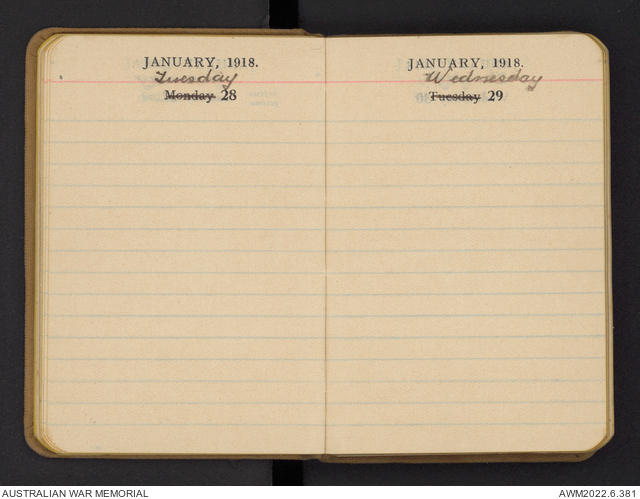 JANUARY, 1918.
Tuesday
Monday 28
JANUARY, 1918.
Wednesday
Tuesday 29
AUSTRALIAN WAR MEMORIAL
AWM2022.6.381